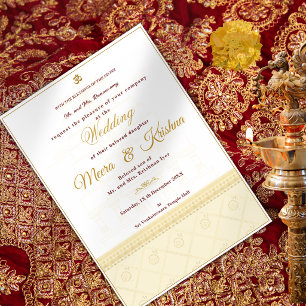 ॐ
WITH THE BLESSINGS OF THE ALMIGHTY
Mr. and Mrs.
request the pleasure of your company
at the
Wedding
of their beloved daughter
Meera & Krishna
Beloved son of
Mr. and Mrs. Krishnan Iyer
Saturday, 15 th December 20XX
At
Sri Venkateswara Temple Hall